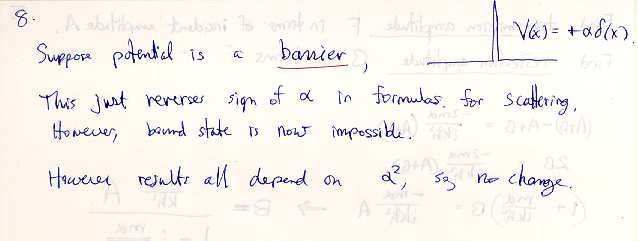 8.
Suppose potential is a barrier, V(x) = +αδ(x).
This just reverses sign of α in formulas for scattering.
However, bound state is now impossible.
However results all depend on α², so no change.